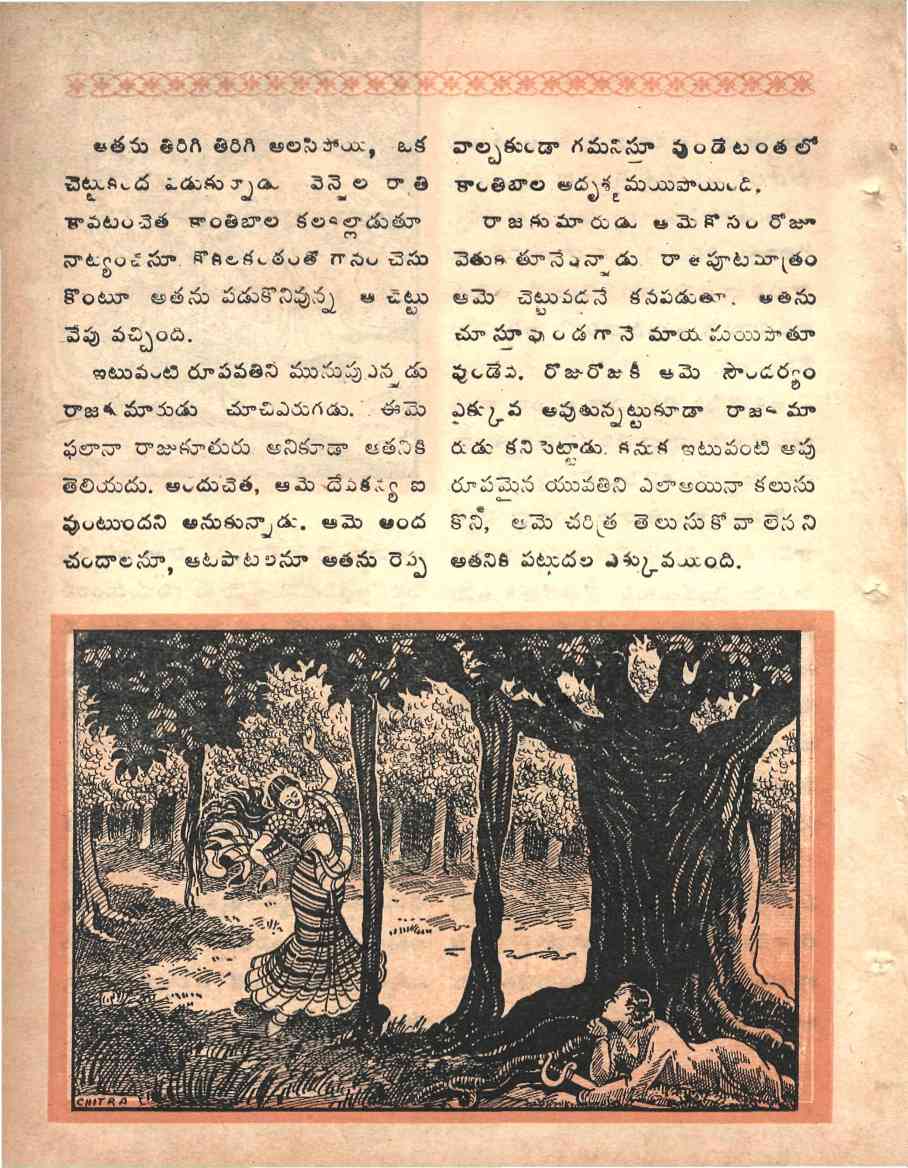 అతను తిరిగి తిరిగి అలసిపోయి, ఒక
చెట్టుకింద పడుకున్నాడు. వెన్నెల రాత్రి
కావటంచేత కాంతిబాల కలకల్లాడుతూ
నాట్యంచేసూ కోకిలకంఠంతో గానం చేసు
కొంటూ అతను పడుకొనివున్న ఆ చెట్టు
వేపు వచ్చింది.
ఇటువంటి రూపవతిని మునుపు ఎన్నడు
రాజకుమారుడు చూచిఎరుగడు. ఈమె
ఫలానా రాజుకూతురు అనికూడా అతనికి
తెలియదు. అందుచేత, ఆమె దేవకన్య ఐ
వుంటుందని అనుకున్నాడు. ఆమె అంద
చందాలనూ, ఆటపాటలనూ అతను రెప్ప
వాల్పకుండా గమనిస్తూ వుండేటంతలో
కాంతిబాల అదృశ్యమయిపోయింది.
రాజకుమారుడు ఆమెకోసం రోజూ
వెతుకుతూనేవున్నాడు. రాత్రిపూటమాత్రం
ఆమె చెట్టువడనే కనపడుతూ, అతను
చూస్తూవుండగానే మాయమయిపోతూ
వుండేది. రోజురోజుకీ ఆమె సౌందర్యం
ఎక్కువ అవుతున్నట్టుకూడా రాజకుమా
రుడు కనిపెట్టాడు. కనుక ఇటువంటి అపు
రూపమైన యువతిని ఎలాఅయినా కలుసు
కొని, ఆమె చరిత్ర తెలుసుకోవాలెనని
అతనికి పట్టుదల ఎక్కువయింది.
CHITRA